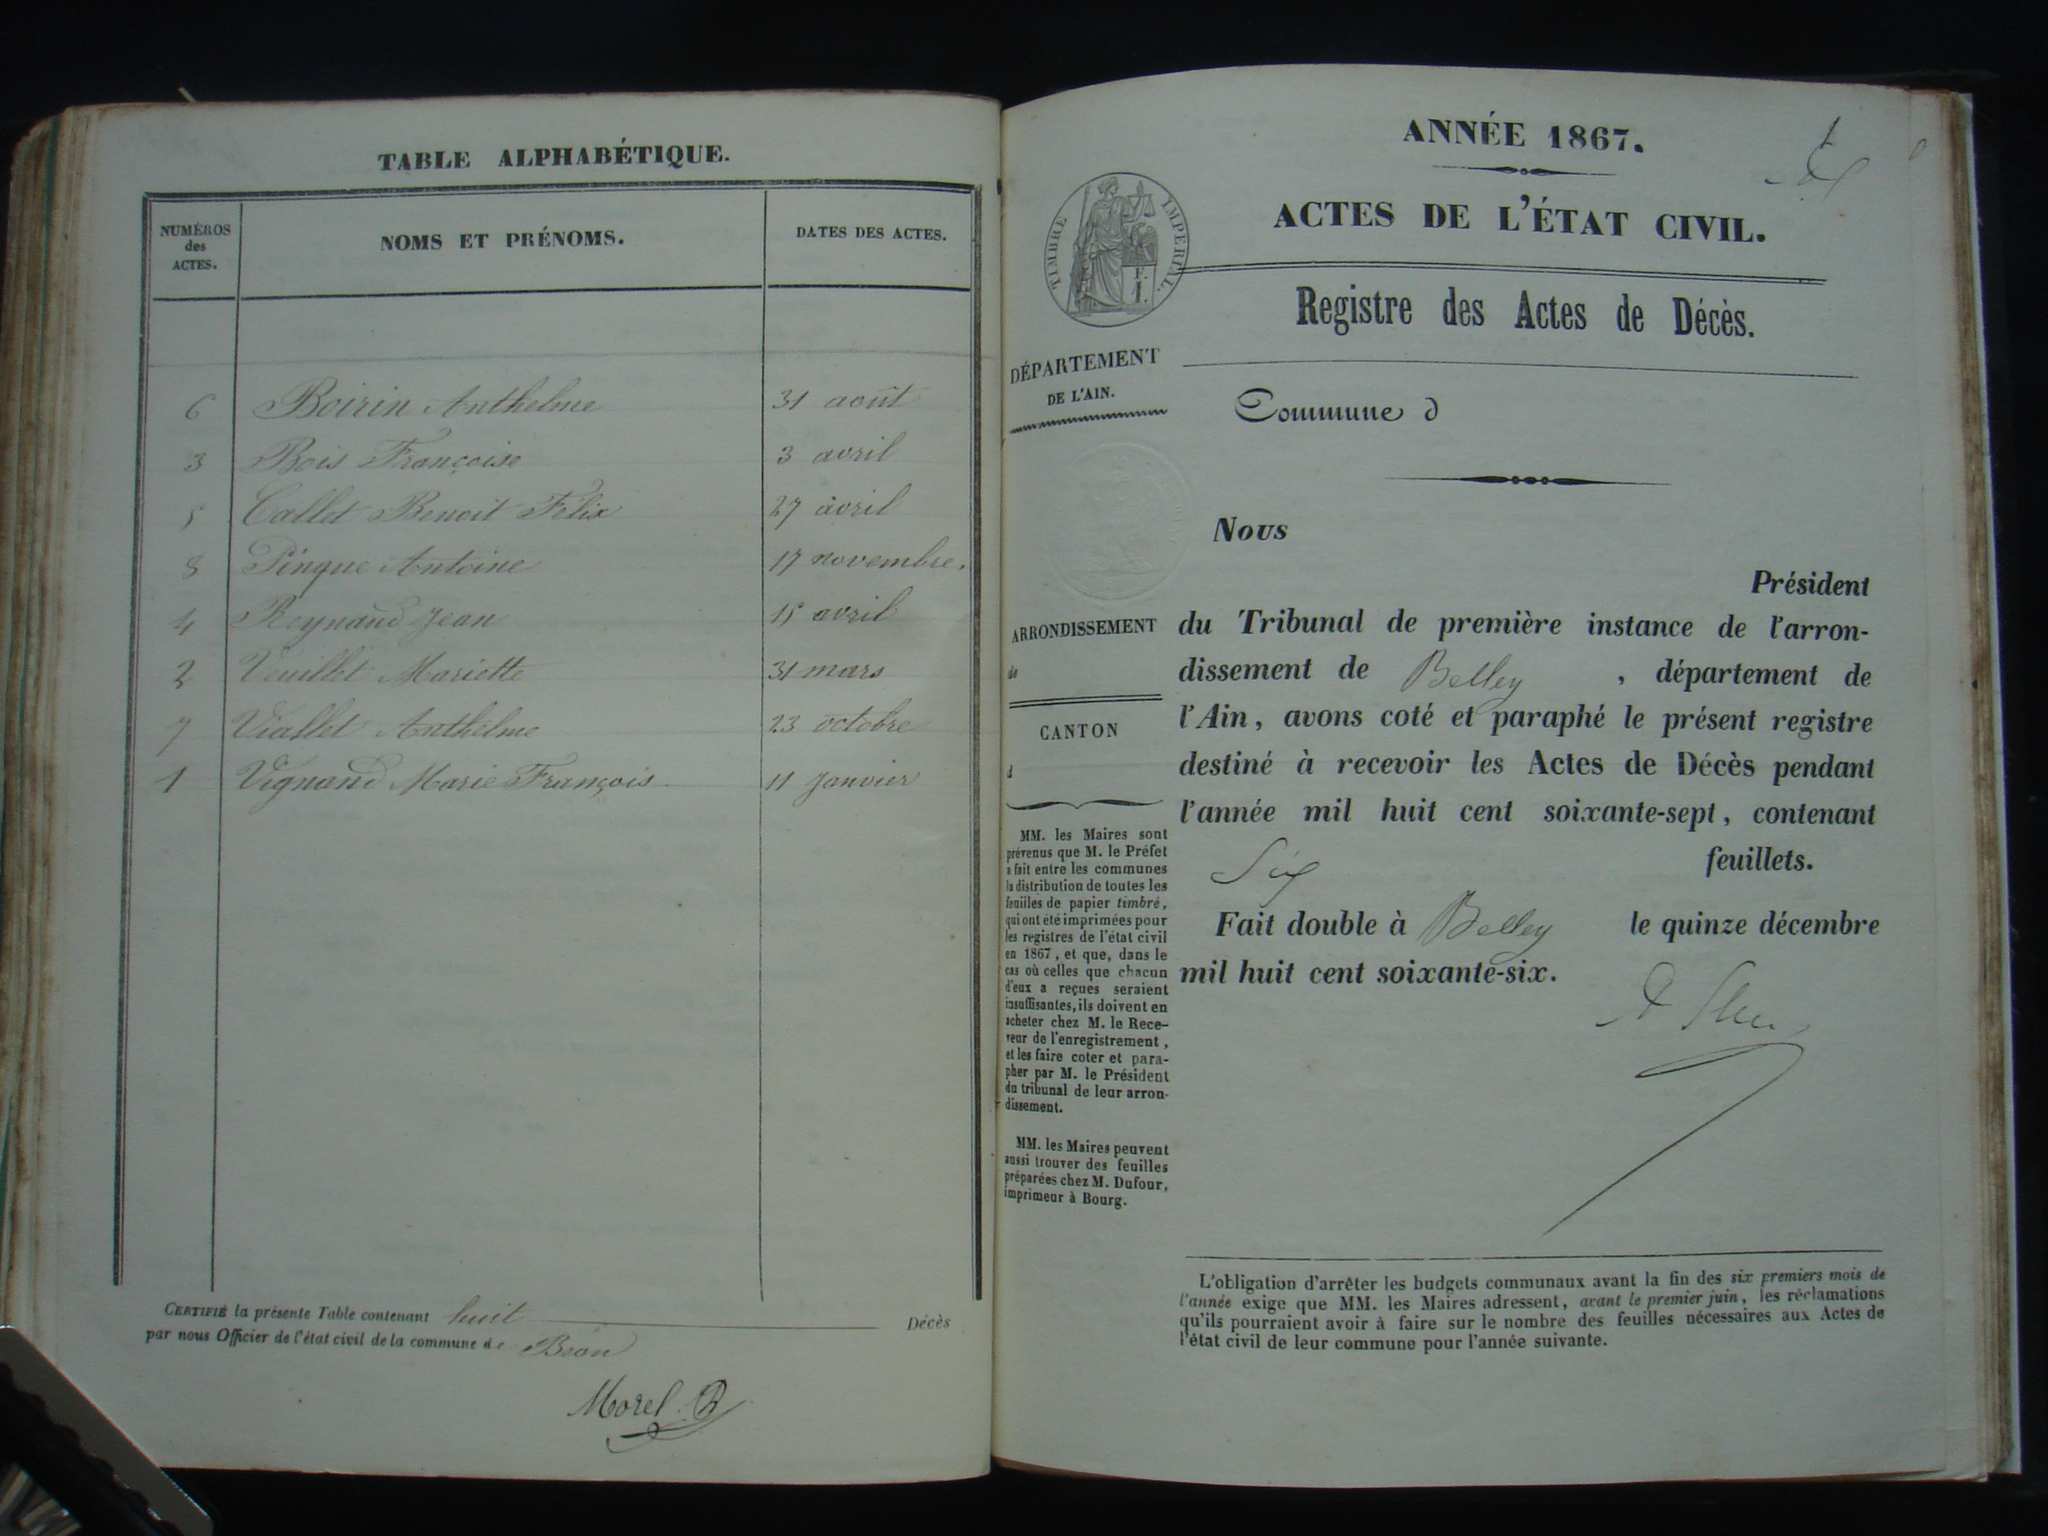 TABLE ALPHABÉTIQUE.
NUMÉROS des ACTES. NOMS ET PRÉNOMS. DATES DES ACTES.
6 Boirin Anthelme 31 août
3 Bois Françoise 3 avril
5 Callet Benoit Félix 27 avril
8 Pinque Antoine 17 novembre.
4 Reynaud Jean 15 avril
2 Veuillet Mariette 31 mars
7 Viallet Anthelme 23 octobre
1 Vignand Marie François 11 Janvier
CERTIFIÉ la présente Table contenant huit Décès
par nous Officier de l'état civil de la commune de Béon
Morel B
ANNÉE 1867.
ACTES DE L'ÉTAT CIVIL.
TIMBRE IMPERIAL.
Registre des Actes de Décès.
DÉPARTEMENT
DE L'AIN.
Commune d
Nous
Président
du Tribunal de première instance de l'arron-
dissement de Belley, département de
l'Ain, avons coté et paraphé le présent registre
destiné à recevoir les Actes de Décès pendant
l'année mil huit cent soixante-sept, contenant
Six feuillets.
Fait double à Belley le quinze décembre
mil huit cent soixante-six.
ARRONDISSEMENT
de
CANTON
d
MM. les Maires sont
prévenus que M. le Préfet
a fait entre les communes
la distribution de toutes les
feuilles de papier timbré,
qui ont été imprimées pour
les registres de l'état civil
en 1867, et que, dans le
cas où celles que chacun
d'eux a reçues seraient
insuffisantes, ils doivent en
acheter chez M. le Rece-
veur de l'enregistrement,
et les faire coter et para-
pher par M. le Président
du tribunal de leur arron-
dissement.
MM. les Maires peuvent
aussi trouver des feuilles
préparées chez M. Dufour,
imprimeur à Bourg.
L'obligation d'arrêter les budgets communaux avant la fin des six premiers mois de
l'année exige que MM. les Maires adressent, avant le premier juin, les réclamations
qu'ils pourraient avoir à faire sur le nombre des feuilles nécessaires aux Actes de
l'état civil de leur commune pour l'année suivante.